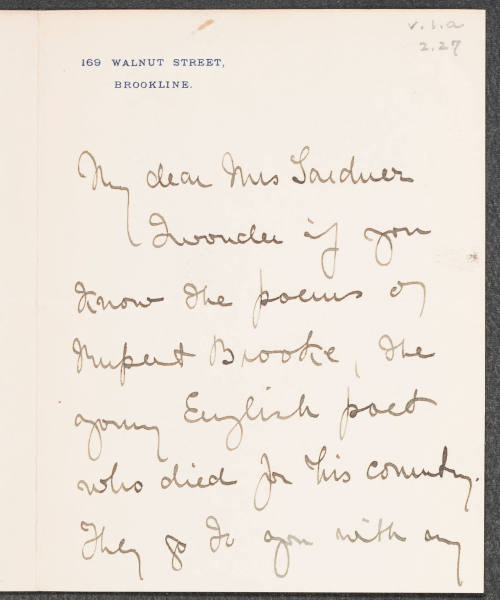 v.1.a
2.27
169 WALNUT STREET,
BROOKLINE.
My dear Mrs Gardner
I wonder if you
know the poems of
Rupert Brooke, the
young English poet
who died for his country.
They go to you with my